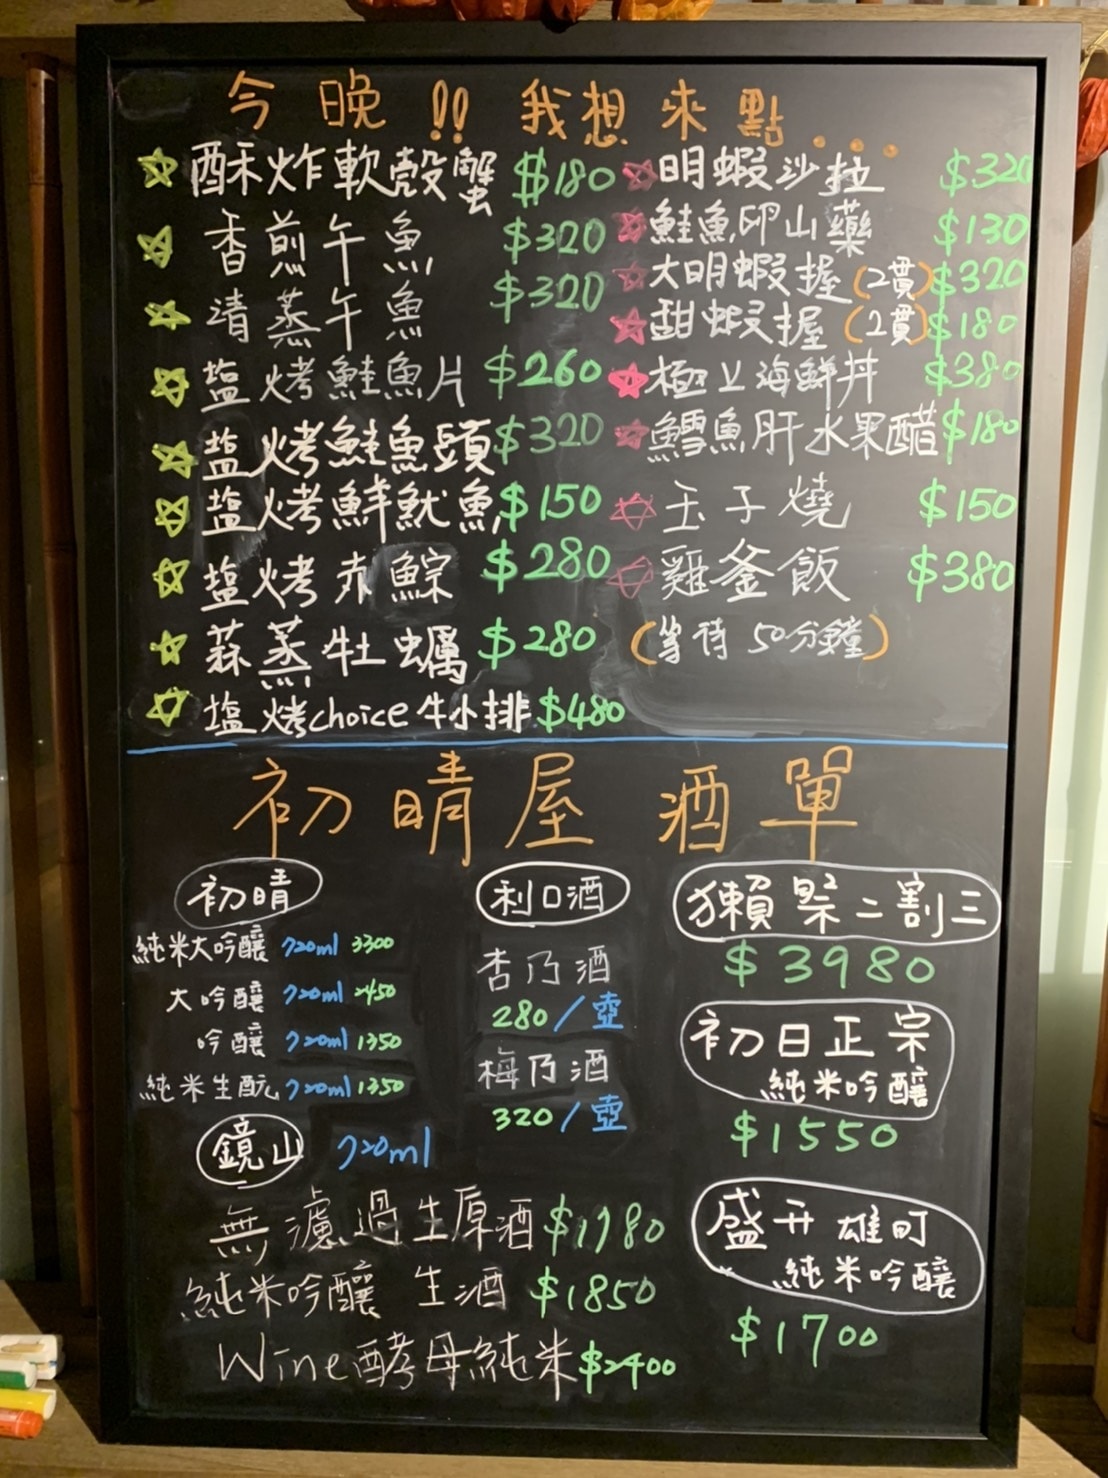 今晚!! 我想來點...
酥炸軟殼蟹 $180
香煎午魚 $320
清蒸午魚 $320
塩烤鮭魚片 $260
塩烤鮭魚頭 $320
塩烤鮮魷魚 $150
塩烤赤鯮 $280
蒜蒸牡蠣 $280
塩烤choice牛小排 $480
明蝦沙拉 $320
鮭魚卵山藥 $130
大明蝦握(2貫) $320
甜蝦握(2貫) $180
極上海鮮丼 $380
鱈魚肝水果醋 $180
玉子燒 $150
雞釜飯 $380
(等待50分鐘)
初晴屋 酒單
初晴
純米大吟釀 720ml 3300
大吟釀 720ml 2450
吟釀 720ml 1350
純米生酛 720ml 1350
鏡山 720ml
無濾過生原酒 $1780
純米吟釀 生酒 $1850
Wine酵母純米 $2400
利口酒
杏乃酒
280/壺
梅乃酒
320/壺
獺祭二割三
$3980
初日正宗
純米吟釀
$1550
盛升雄町
純米吟釀
$1700